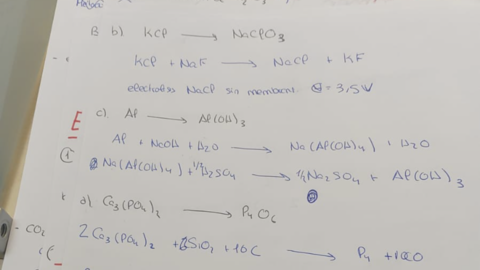 B b) KCl → NaClO3
KCl + NaF → NaCl + KF
electrolisis NaCl sin membrana. = 3,5 V
E c) Al → Al(OH)3
Al + NaOH + H2O → Na(Al(OH)4) + H2O
① Na(Al(OH)4) + 1/2 H2SO4 → 1/2 Na2SO4 + Al(OH)3
d) Ca3(PO4)2 → P4O6
- CO2
2 Ca3(PO4)2 + 6SiO2 + 10C → P4 + 10CO